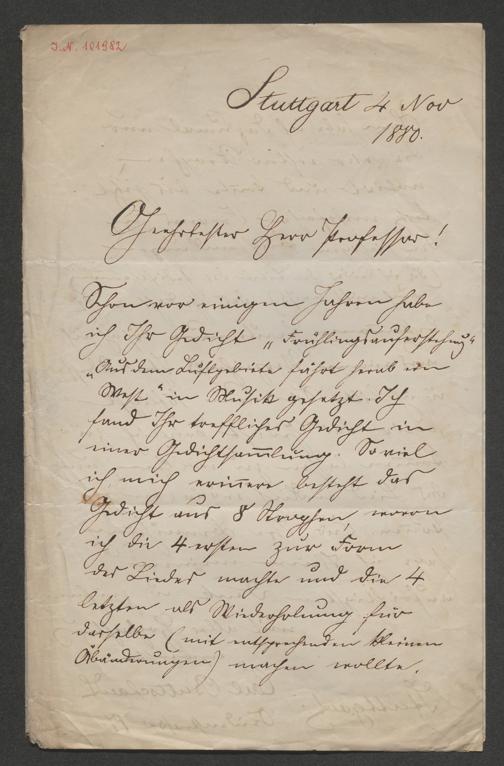 I. N. 101982
Stuttgart 4 Nov
1880.
Geehrtester Herr Professor!
Schon vor einigen Jahren habe
ich Ihr Gedicht „Frühlingsauferstehung"
„Aus dem Luftgebiete fährt herab ein
West" in Musik gesetzt. Ich
fand Ihr treffliches Gedicht in
einer Gedichtsammlung. So viel
ich mich erinnere besteht das
Gedicht aus 8 Strophen, wovon
ich die 4 ersten zur Form
des Liedes machte und die 4
letzten als Wiederholung für
dasselbe (mit entsprechenden kleinen
Abänderungen) machen wollte.